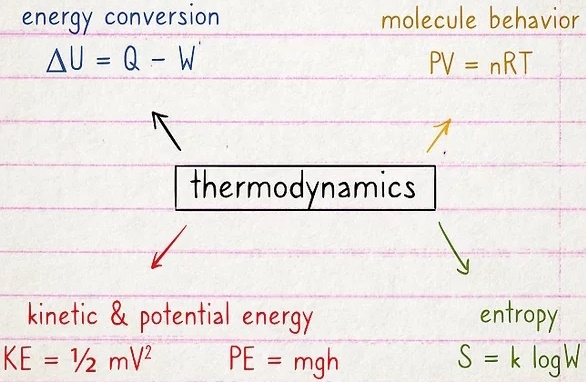 energy conversion
ΔU = Q - W
molecule behavior
PV = nRT
thermodynamics
kinetic & potential energy
KE = ½ mV² PE = mgh
entropy
S = k logW